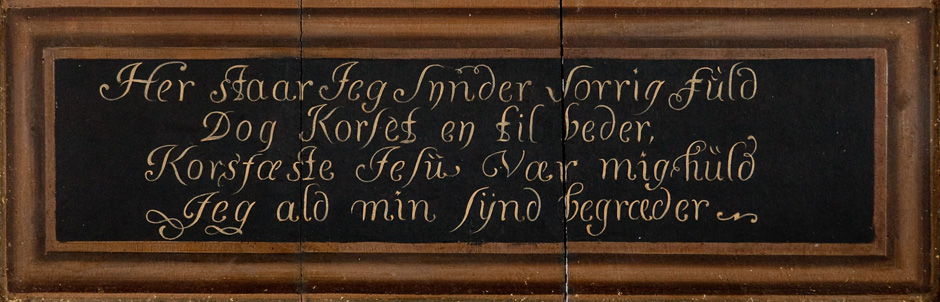 Her staar Jeg Synder sorrig fùld
Dog Korset en til beder,
Korsfæste Jesù Vær mig hùld
Jeg ald min sÿnd begræder